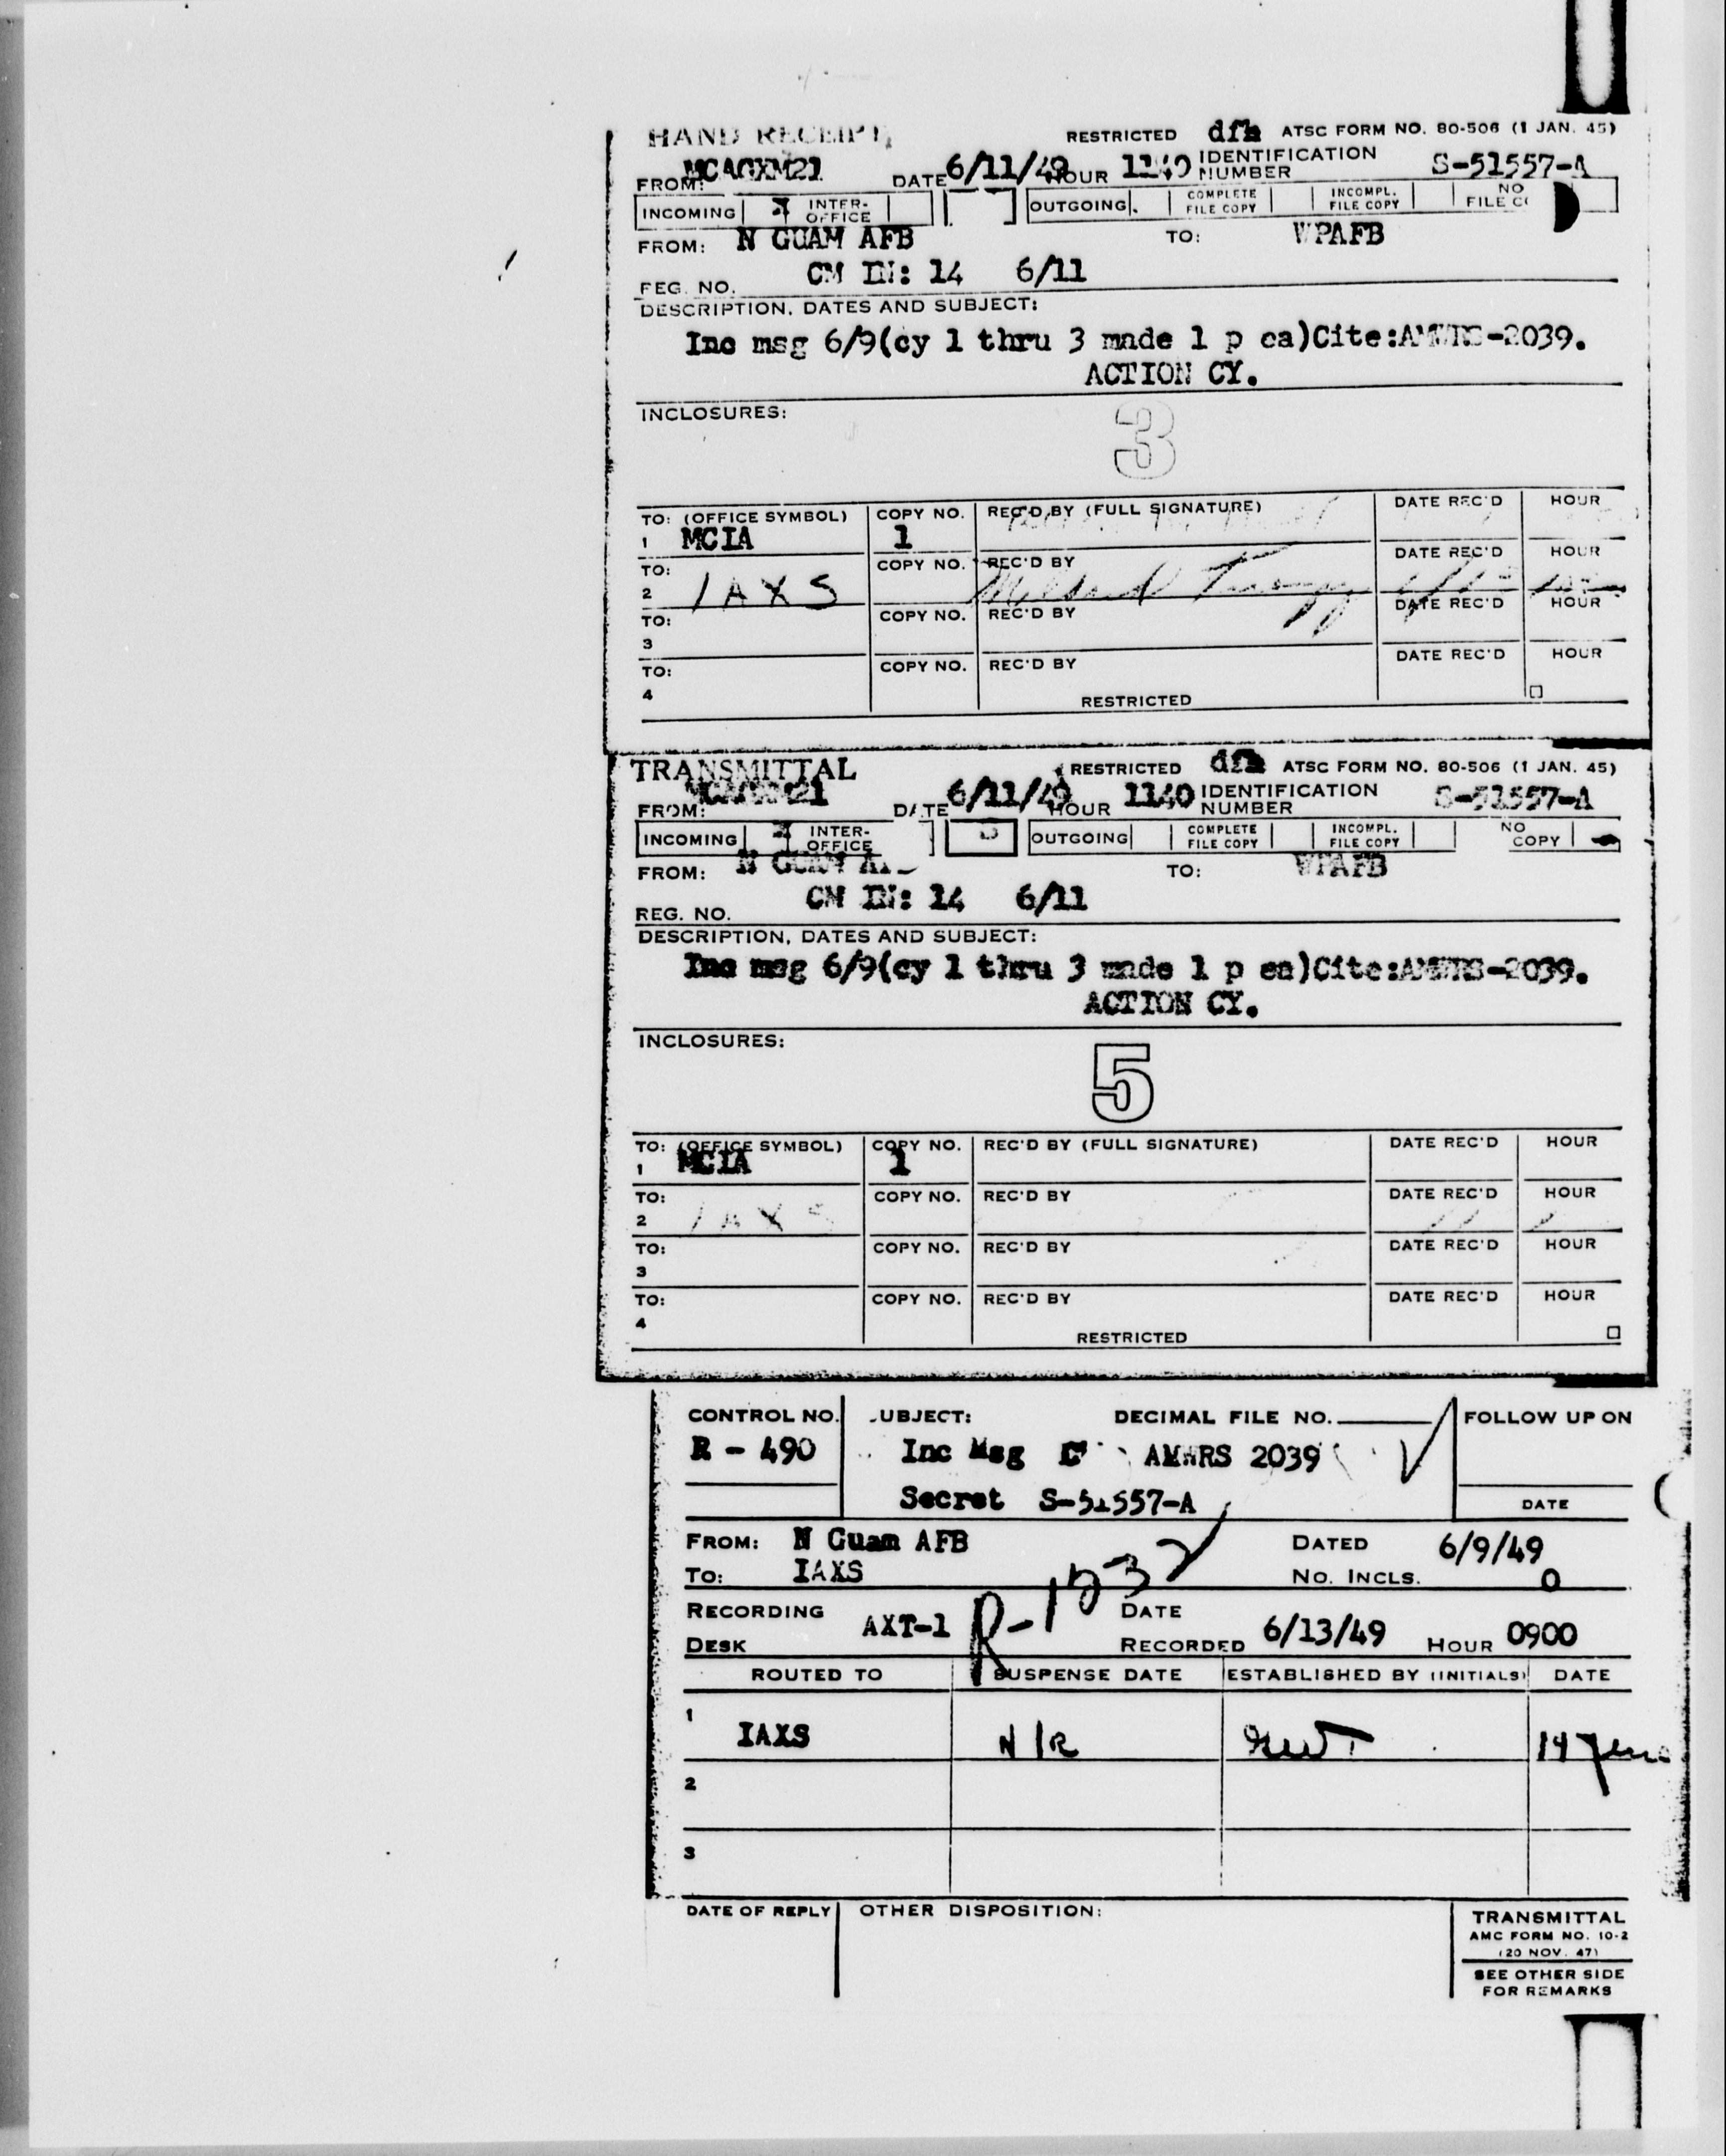 HAND RECEIPT RESTRICTED dfh ATSC FORM NO. 80-506 (1 JAN. 45)
FROM: MCAGXM21 DATE 6/11/49 HOUR 1140 IDENTIFICATION NUMBER S-51557-A
INCOMING INTER-OFFICE OUTGOING COMPLETE FILE COPY INCOMPL. FILE COPY NO FILE
FROM: N GUAM AFB TO: WPAFB
REG. NO. CM IN: 14 6/11
DESCRIPTION, DATES AND SUBJECT:
Inc msg 6/9(cy 1 thru 3 made 1 p ea)Cite:AMWRS-2039.
ACTION CY.
INCLOSURES:
3
TO: (OFFICE SYMBOL) COPY NO. REC'D BY (FULL SIGNATURE) DATE REC'D HOUR
1 MCIA 1
TO: COPY NO. REC'D BY DATE REC'D HOUR
2 IAXS
TO: COPY NO. REC'D BY DATE REC'D HOUR
3
TO: COPY NO. REC'D BY DATE REC'D HOUR
4
RESTRICTED
TRANSMITTAL RESTRICTED dfh ATSC FORM NO. 80-506 (1 JAN. 45)
FROM: MCAGXM21 DATE 6/11/49 HOUR 1140 IDENTIFICATION NUMBER S-51557-A
INCOMING INTER-OFFICE OUTGOING COMPLETE FILE COPY INCOMPL. FILE COPY NO COPY
FROM: N GUAM TO: WPAFB
REG. NO. CM IN: 14 6/11
DESCRIPTION, DATES AND SUBJECT:
Inc msg 6/9(cy 1 thru 3 made 1 p ea)Cite:AMWRS-2039.
ACTION CY.
INCLOSURES:
5
TO: (OFFICE SYMBOL) COPY NO. REC'D BY (FULL SIGNATURE) DATE REC'D HOUR
1 MCIA 1
TO: COPY NO. REC'D BY DATE REC'D HOUR
2 IAXS
TO: COPY NO. REC'D BY DATE REC'D HOUR
3
TO: COPY NO. REC'D BY DATE REC'D HOUR
4
RESTRICTED
CONTROL NO. UBJECT: DECIMAL FILE NO. FOLLOW UP ON
R - 490 Inc Msg AMWRS 2039
Secret S-51557-A DATE
FROM: N Guam AFB DATED 6/9/49
TO: IAXS NO. INCLS. 0
R-1532
RECORDING DESK AXT-1 DATE RECORDED 6/13/49 HOUR 0900
ROUTED TO SUSPENSE DATE ESTABLISHED BY (INITIALS) DATE
1 IAXS N/R 14 June
2
3
DATE OF REPLY OTHER DISPOSITION: TRANSMITTAL
AMC FORM NO. 10-2
(20 NOV. 47)
SEE OTHER SIDE
FOR REMARKS